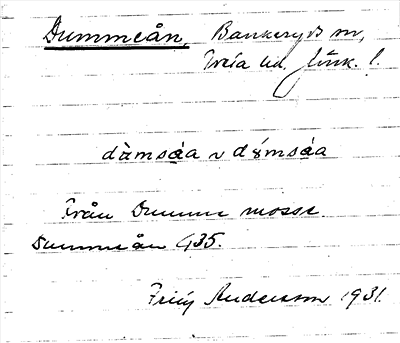 Dummeån, Bankeryds sn,
Tveta hd, Jönk. l.
dàmsáa v dýmsáa
Från Dumme mosse.
Dummeån G35.
Andersson 1931.